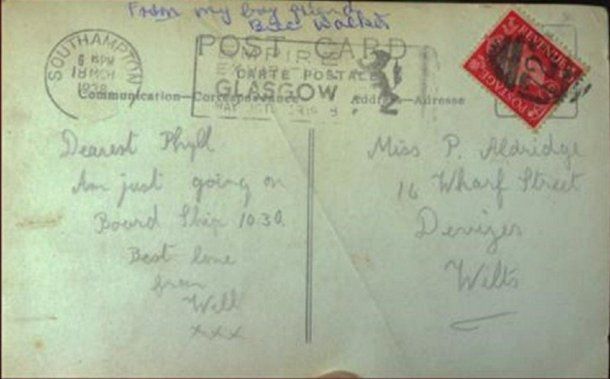 From my boy friend
Bill
POST CARD
CARTE POSTALE
Communication—Correspondance Address—Adresse
SOUTHAMPTON
6 PM
18 MCH
1938
EMPIRE
GLASGOW
POSTAGE REVENUE
Dearest Phyll
Am just going on
Board Ship 10.30.
Best love
from
Will
xxx
Miss P. Aldridge
16 Wharf Street
Devizes
Wilts